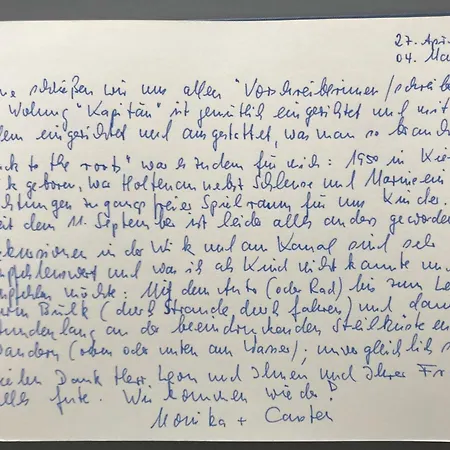 27. Apri
04. Ma
schließen wir uns allen "Vorschreiberinnen/schreibe
Wohnung "Kapitän" ist gemütlich eingerichtet und mit
lem eingerichtet und ausgestattet, was man so brauch
ck to the roots" war es zudem für mich: 1950 in Kie
k geboren, war Holtenau nebst Schleuse und Marineein
chtungen zugangsfreier Spielraum für uns Kinder.
eit dem 11. September ist leider alles anders geworden
kursionen in der Wik und am Kanal sind sehr
mpfehlenswert und was ich als Kind nicht kannte und
mpfehlen möchte: Mit dem Auto (oder Rad) bis zum Le
Bülk (durch Strande durch fahren) und dann
stundenlang an der beeindruckenden Steilküste en
andern (oben oder unten am Wasser), unvergleichlich s
ielen Dank Herr Leon und Ihnen und Ihrer Fr
lles Gute. Wir kommen wieder!
Monika + Carsten